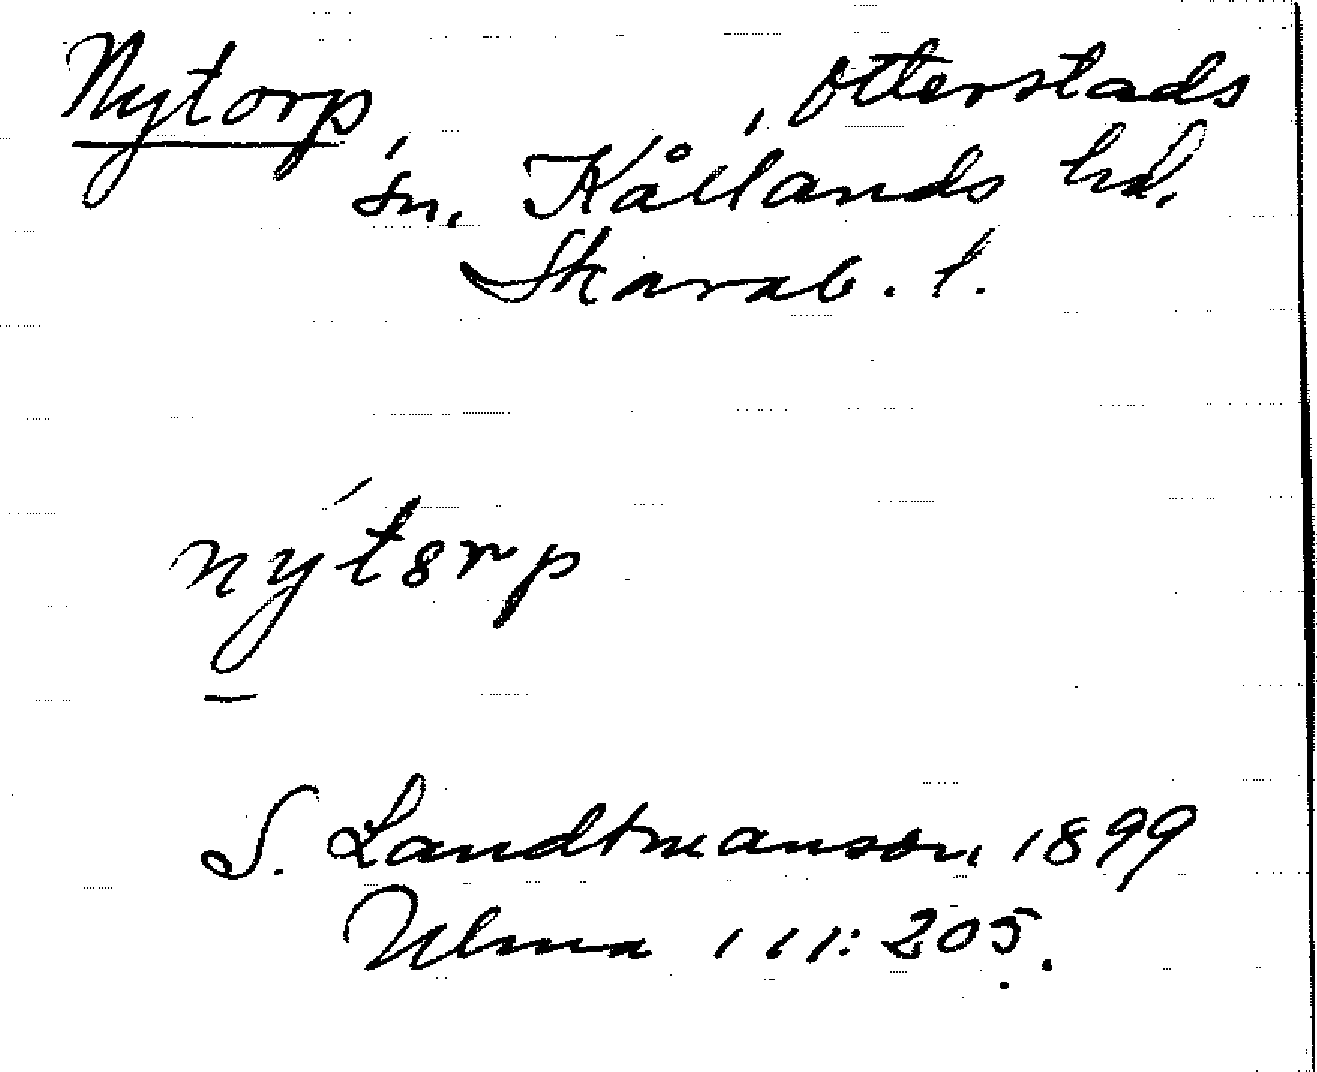 Nytorp, Otterstads
sn. Kållands hd.
Skarab. l.
nýtȣrp
S. Landtmanson 1899
Ulma 111:205.